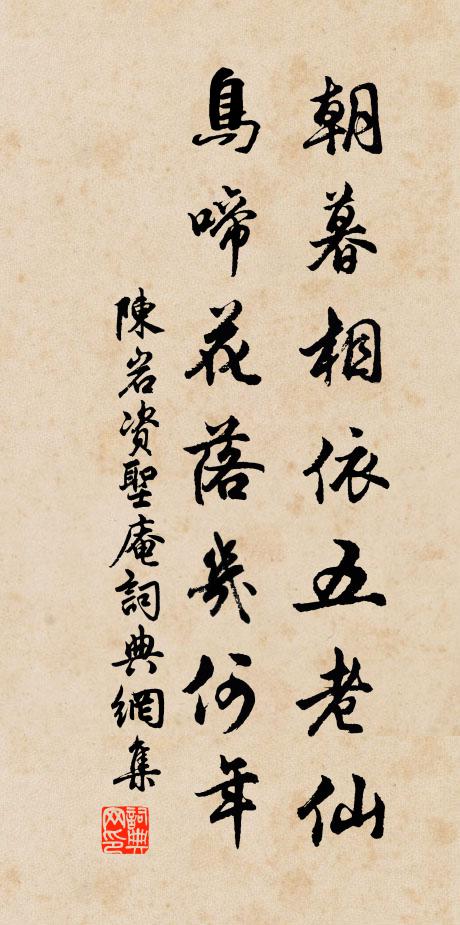 朝暮相依五老仙
鳥啼花落幾何年
陳岩資聖庵詞典網集
詞典
网印